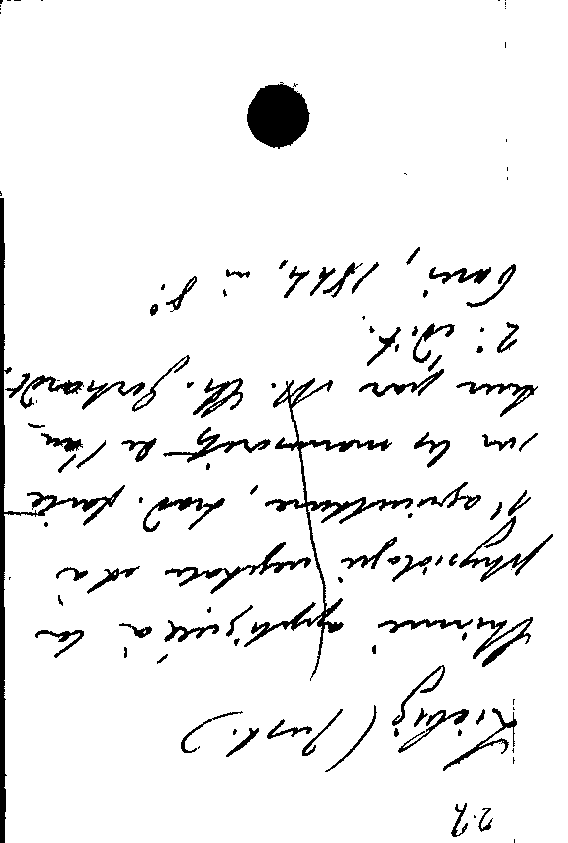 22
Liebig (Just.)
Chimie appliquée à la
physiologie végétale et à
l'agriculture, trad. faite
sur les manuscrits de l'au
teur par M. Ch. Gerhardt,
2e édit.
Paris, 1844, in 8o.